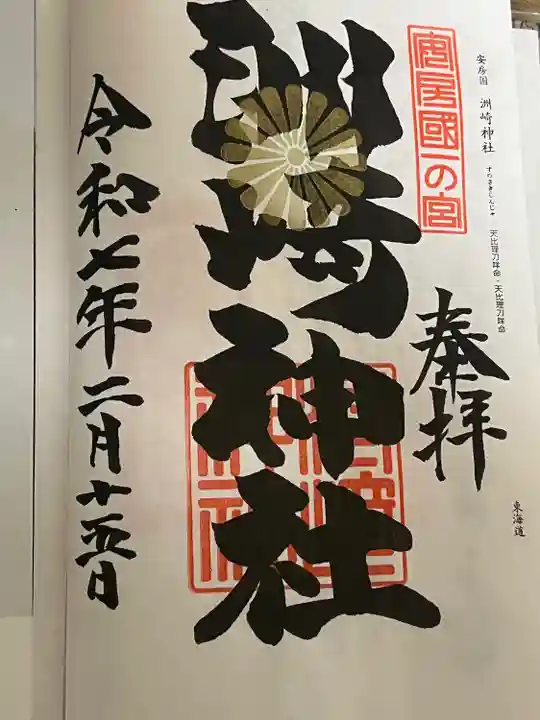 安房國一の宮
安房国 洲崎神社 すのさきじんじゃ 天比理刀咩命・天比理刀咩命
東海道
奉拝
洲崎神社
洲崎神社
令和七年二月十五日